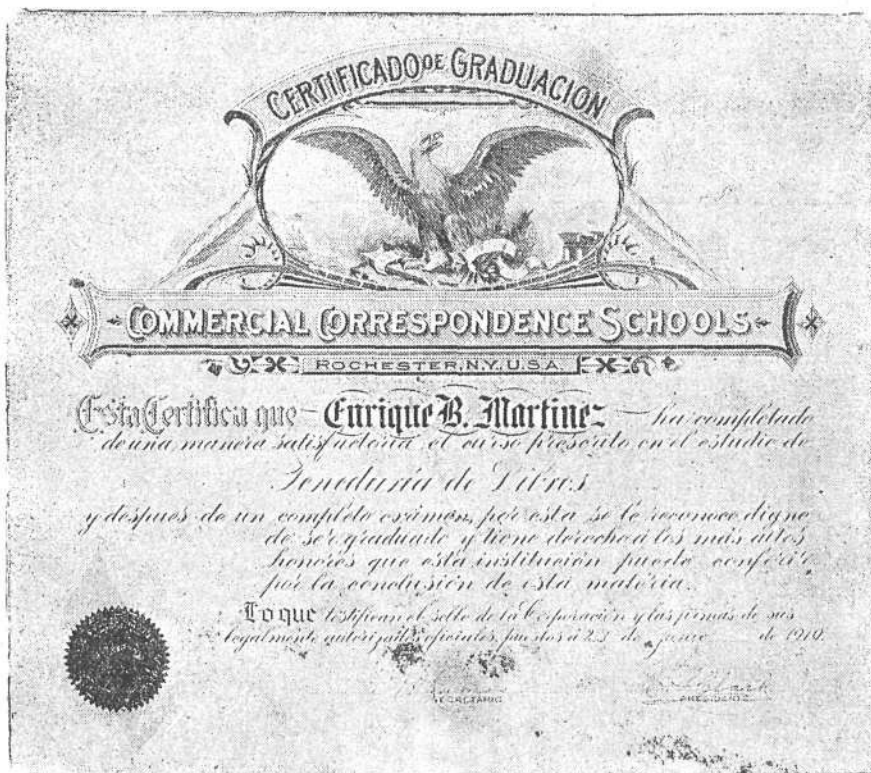 CERTIFICADO DE GRADUACION
COMMERCIAL CORRESPONDENCE SCHOOLS
ROCHESTER, N.Y. U.S.A.
Esta Certifica que Enrique B. Martinez ha completado
de una manera satisfactoria el curso prescrito en el estudio de
Teneduría de Libros
y despues de un completo exámen, por esta se le reconoce digno
de ser graduado y tiene derecho á los más altos
honores que esta institución puede conferir
por la conclusión de esta materia.
Lo que testifican el sello de la Corporación y las firmas de sus
legalmente autorizados oficiales, puestos á 23 de de 1910.
SECRETARIO
PRESIDENTE